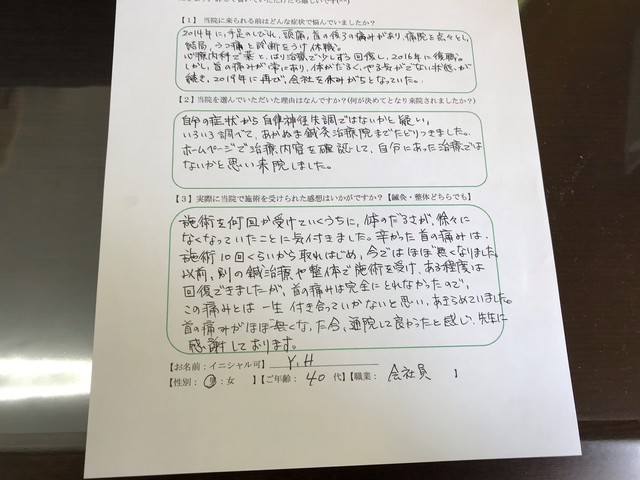 【1】 当院に来られる前はどんな症状で悩んでいましたか？
2014年に、手足のしびれ、頭痛、首の後ろの痛みがあり、病院を転々とし
結局、うつ病と診断をうけ休職。
心療内科で薬と、はり治療で少しずつ回復し、2016年に復職。
しかし、首の痛みが常にあり、体がだるく、やる気がでない状態が
続き、2019年に再び、会社を休みがちとなっていた。
【2】当院を選んでいただいた理由はなんですか？(何が決めてとなり来院されましたか？)
自分の症状から自律神経失調ではないかと疑い、
いろいろ調べて、あかぬま鍼灸治療院までたどりつきました。
ホームページで治療内容を確認して、自分にあった治療では
ないかと思い来院しました。
【3】実際に当院で施術を受けられた感想はいかがですか？【鍼灸・整体どちらでも】
施術を何回か受けていくうちに、体のだるさが、徐々に
なくなっていたことに気付きました。辛かった首の痛みは、
施術10回くらいから取れはじめ、今ではほぼ無くなりました。
以前、別の鍼治療や整体で施術を受け、ある程度は
回復できましたが、首の痛みは完全にとれなかったので、
この痛みとは一生付き合っていかないと思い、あきらめていました。
首の痛みがほぼ無くなった今、通院して良かったと感じ、先生に
感謝しております。
【お名前：イニシャル可】 Y.H
【性別：男：女 】【ご年齢： 40 代】【職業： 会社員 】